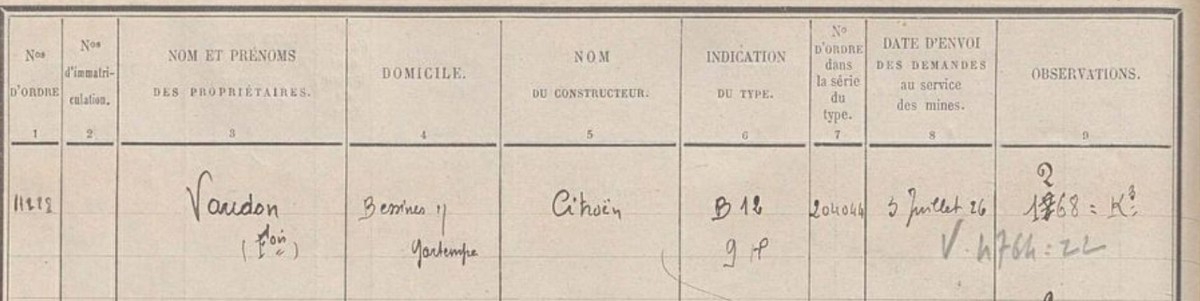 Nos
D'ORDRE
1
Nos
d'immatri-
culation.
2
NOM ET PRÉNOMS
DES PROPRIÉTAIRES.
3
DOMICILE.
4
NOM
DU CONSTRUCTEUR.
5
INDICATION
DU TYPE.
6
No
D'ORDRE
dans
la série
du
type.
7
DATE D'ENVOI
DES DEMANDES
au service
des mines.
8
OBSERVATIONS.
9
Vaudon
Bessines s/
Gartempe
Citroën
B 12
9 H
204044
3 Juillet 26
2
1768 = K3
V. 4764 = 22